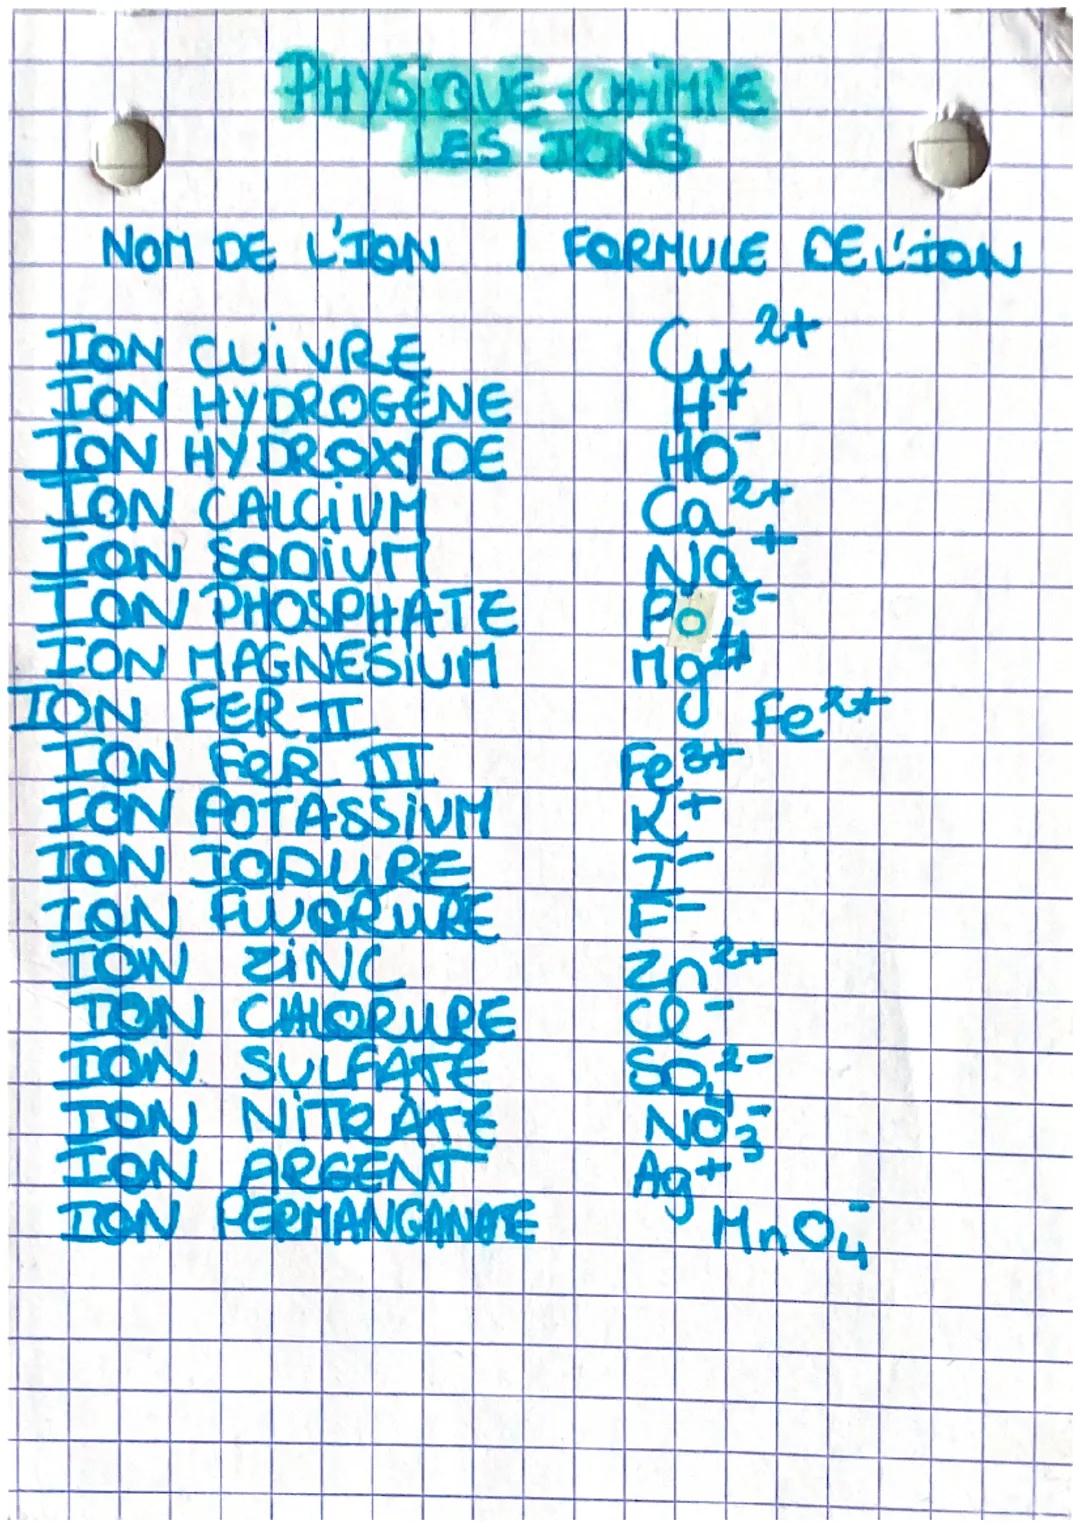 PHYSIQUE-CHIMIE
LES IONS
NOM DE L'ION | FORMULE DE L'ION
ION CUIVRE Cu²⁺
ION HYDROGÈNE H⁺
ION HYDROXYDE HO⁻
ION CALCIUM Ca²⁺
ION SODIUM Na⁺
ION PHOSPHATE PO₄³⁻
ION MAGNESIUM Mg²⁺
ION FER II Fe²⁺
ION FER III Fe³⁺
ION POTASSIUM K⁺
ION IODURE I⁻
ION FLUORURE F⁻
ION ZINC Zn²⁺
ION CHLORURE Cl⁻
ION SULFATE SO₄²⁻
ION NITRATE NO₃⁻
ION ARGENT Ag⁺
ION PERMANGANATE MnO₄⁻